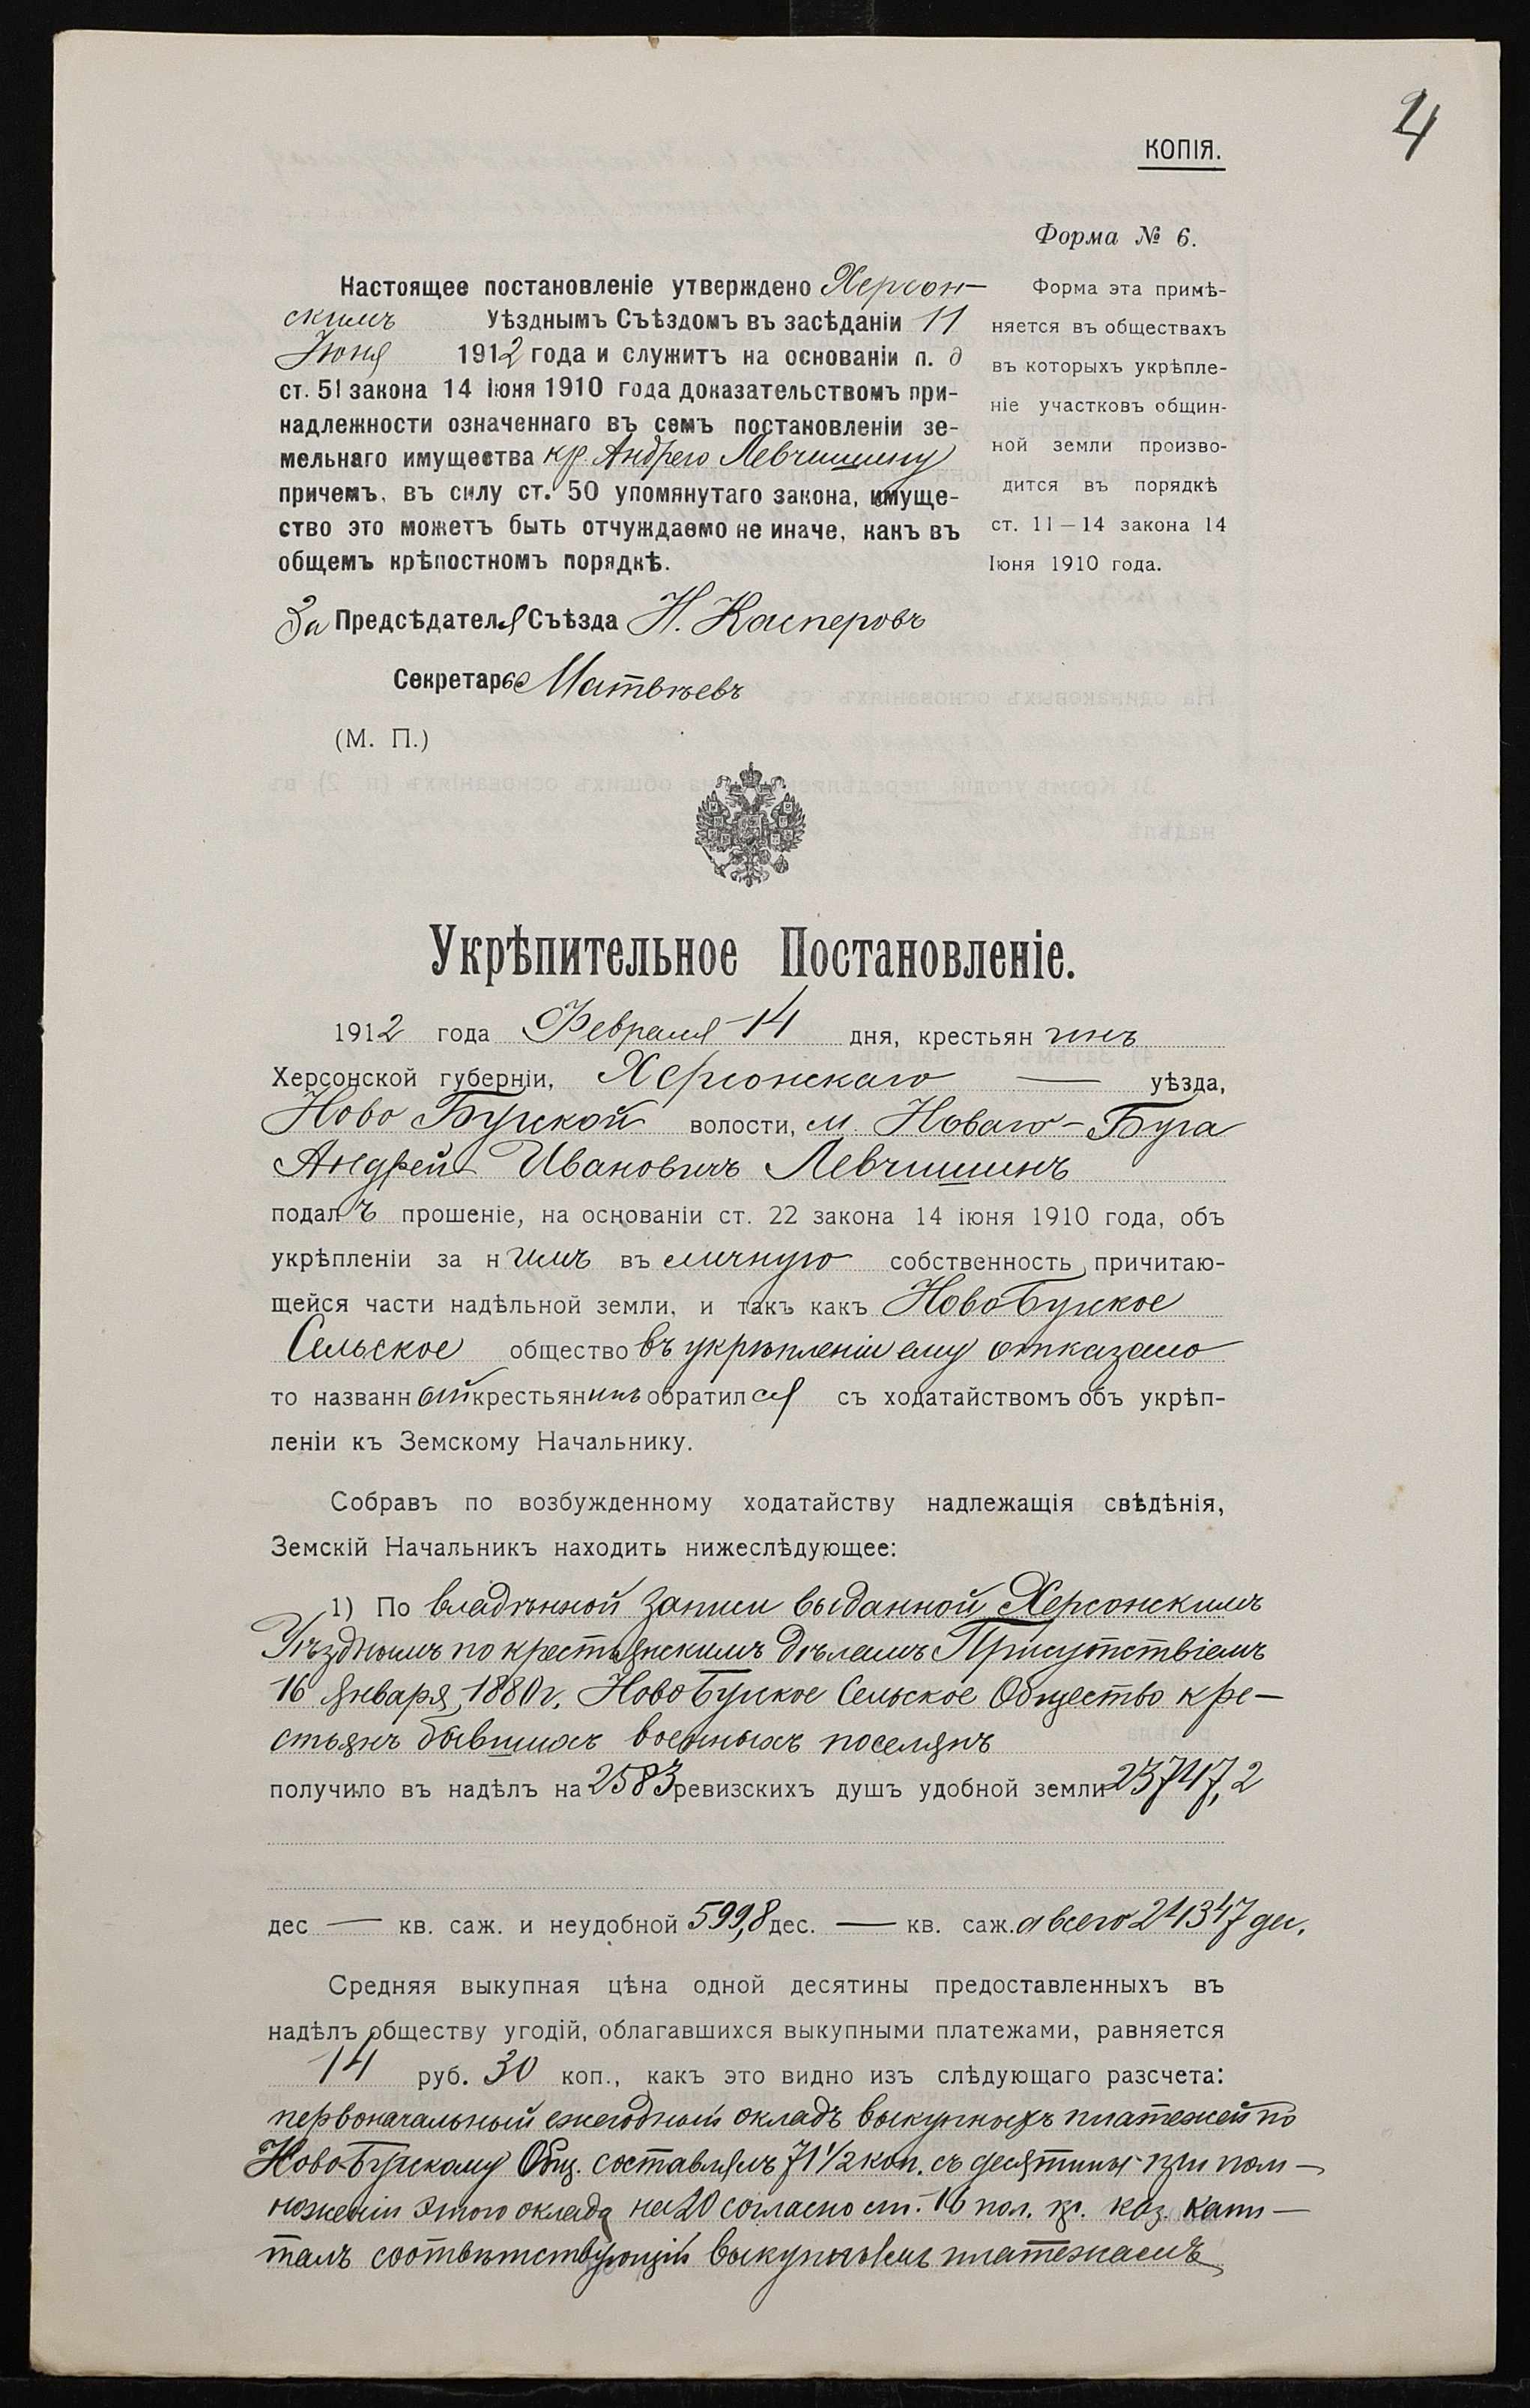 4
КОПІЯ.
Форма № 6.
Форма эта примѣ-
няется въ обществахъ
въ которыхъ укрѣпле-
ніе участковъ общин-
ной земли произво-
дится въ порядкѣ
ст. 11—14 закона 14
Іюня 1910 года.
Настоящее постановленіе утверждено Херсон-
скимъ Уѣзднымъ Съѣздомъ въ засѣданіи 11
Іюня 1912 года и служитъ на основаніи п. д
ст. 51 закона 14 Іюня 1910 года доказательствомъ при-
надлежности означеннаго въ семъ постановленіи зе-
мельнаго имущества кр. Андрею Левчишину
причемъ, въ силу ст. 50 упомянутаго закона, имуще-
ство это можетъ быть отчуждаемо не иначе, какъ въ
общемъ крѣпостномъ порядкѣ.
За Предсѣдателя Съѣзда Н. Касперовъ
Секретарь Матвѣевъ
(М. П.)
Укрѣпительное Постановленіе.
1912 года Февраля 14 дня, крестьянинъ
Херсонской губерніи, Херсонскаго — уѣзда,
Ново Бугской волости, м. Новаго-Буга
Андрей Ивановичъ Левчишинъ
подалъ прошеніе, на основаніи ст. 22 закона 14 іюня 1910 года, объ
укрѣпленіи за нимъ въ личную собственность причитаю-
щейся части надѣльной земли, и такъ какъ НовоБугское
Сельское общество въ укрѣпленіи ему отказало
то названный крестьянинъ обратился съ ходатайствомъ объ укрѣп-
леніи къ Земскому Начальнику.
Собравъ по возбужденному ходатайству надлежащія свѣдѣнія,
Земскій Начальникъ находить нижеслѣдующее:
1) По владѣнной записи выданной Херсонскимъ
Уѣзднымъ по крестьянскимъ дѣламъ Присутствіемъ
16 Января 1880 г. НовоБугское Сельское Общество кре-
стьянъ бывшихъ военныхъ поселянъ
получило въ надѣлъ на 2583 ревизскихъ душъ удобной земли 23747,2
дес — кв. саж. и неудобной 599,8 дес. — кв. саж. а всего 24347 дес.
Средняя выкупная цѣна одной десятины предоставленныхъ въ
надѣлъ обществу угодій, облагавшихся выкупными платежами, равняется
14 руб. 30 коп., какъ это видно изъ слѣдующаго разсчета:
первоначальный ежегодный окладъ выкупныхъ платежей по
Ново-Бугскому Общ. составлялъ 71 1/2 коп. съ десятины при пом-
ноженіи этого оклада на 20 согласно ст. 16 пол. кр. каз. капи-
талъ соотвѣтствующій выкупнымъ платежамъ